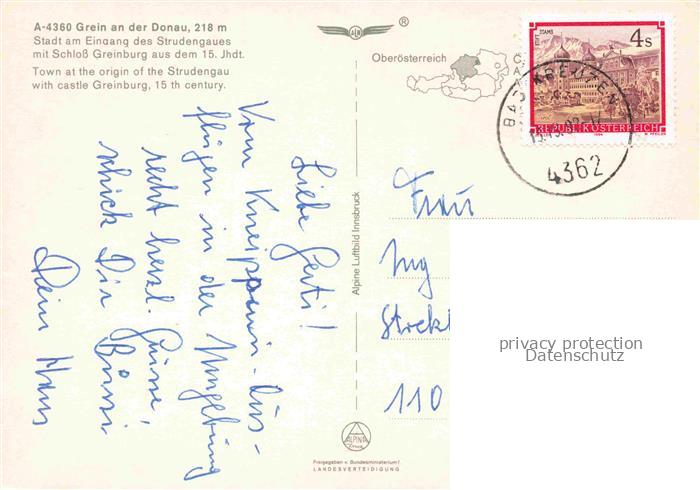 A-4360 Grein an der Donau, 218 m
Stadt am Eingang des Strudengaues
mit Schloß Greinburg aus dem 15. Jhdt.
Town at the origin of the Strudengau
with castle Greinburg, 15 th century.
Liebe Gerti!
Vom Kneippen u. Aus-
flügen in der Umgebung
recht herzl. Grüsse,
schick Dir Bussi
Dein Hans
Alpine Luftbild Innsbruck
®
Oberösterreich
STAMS
4s
REPUBLIK ÖSTERREICH
BAD KREUZEN
4362
Frau
Ing
110
privacy protection
Datenschutz
ALPINA
Freigegeben v. Bundesministerium f.
LANDESVERTEIDIGUNG